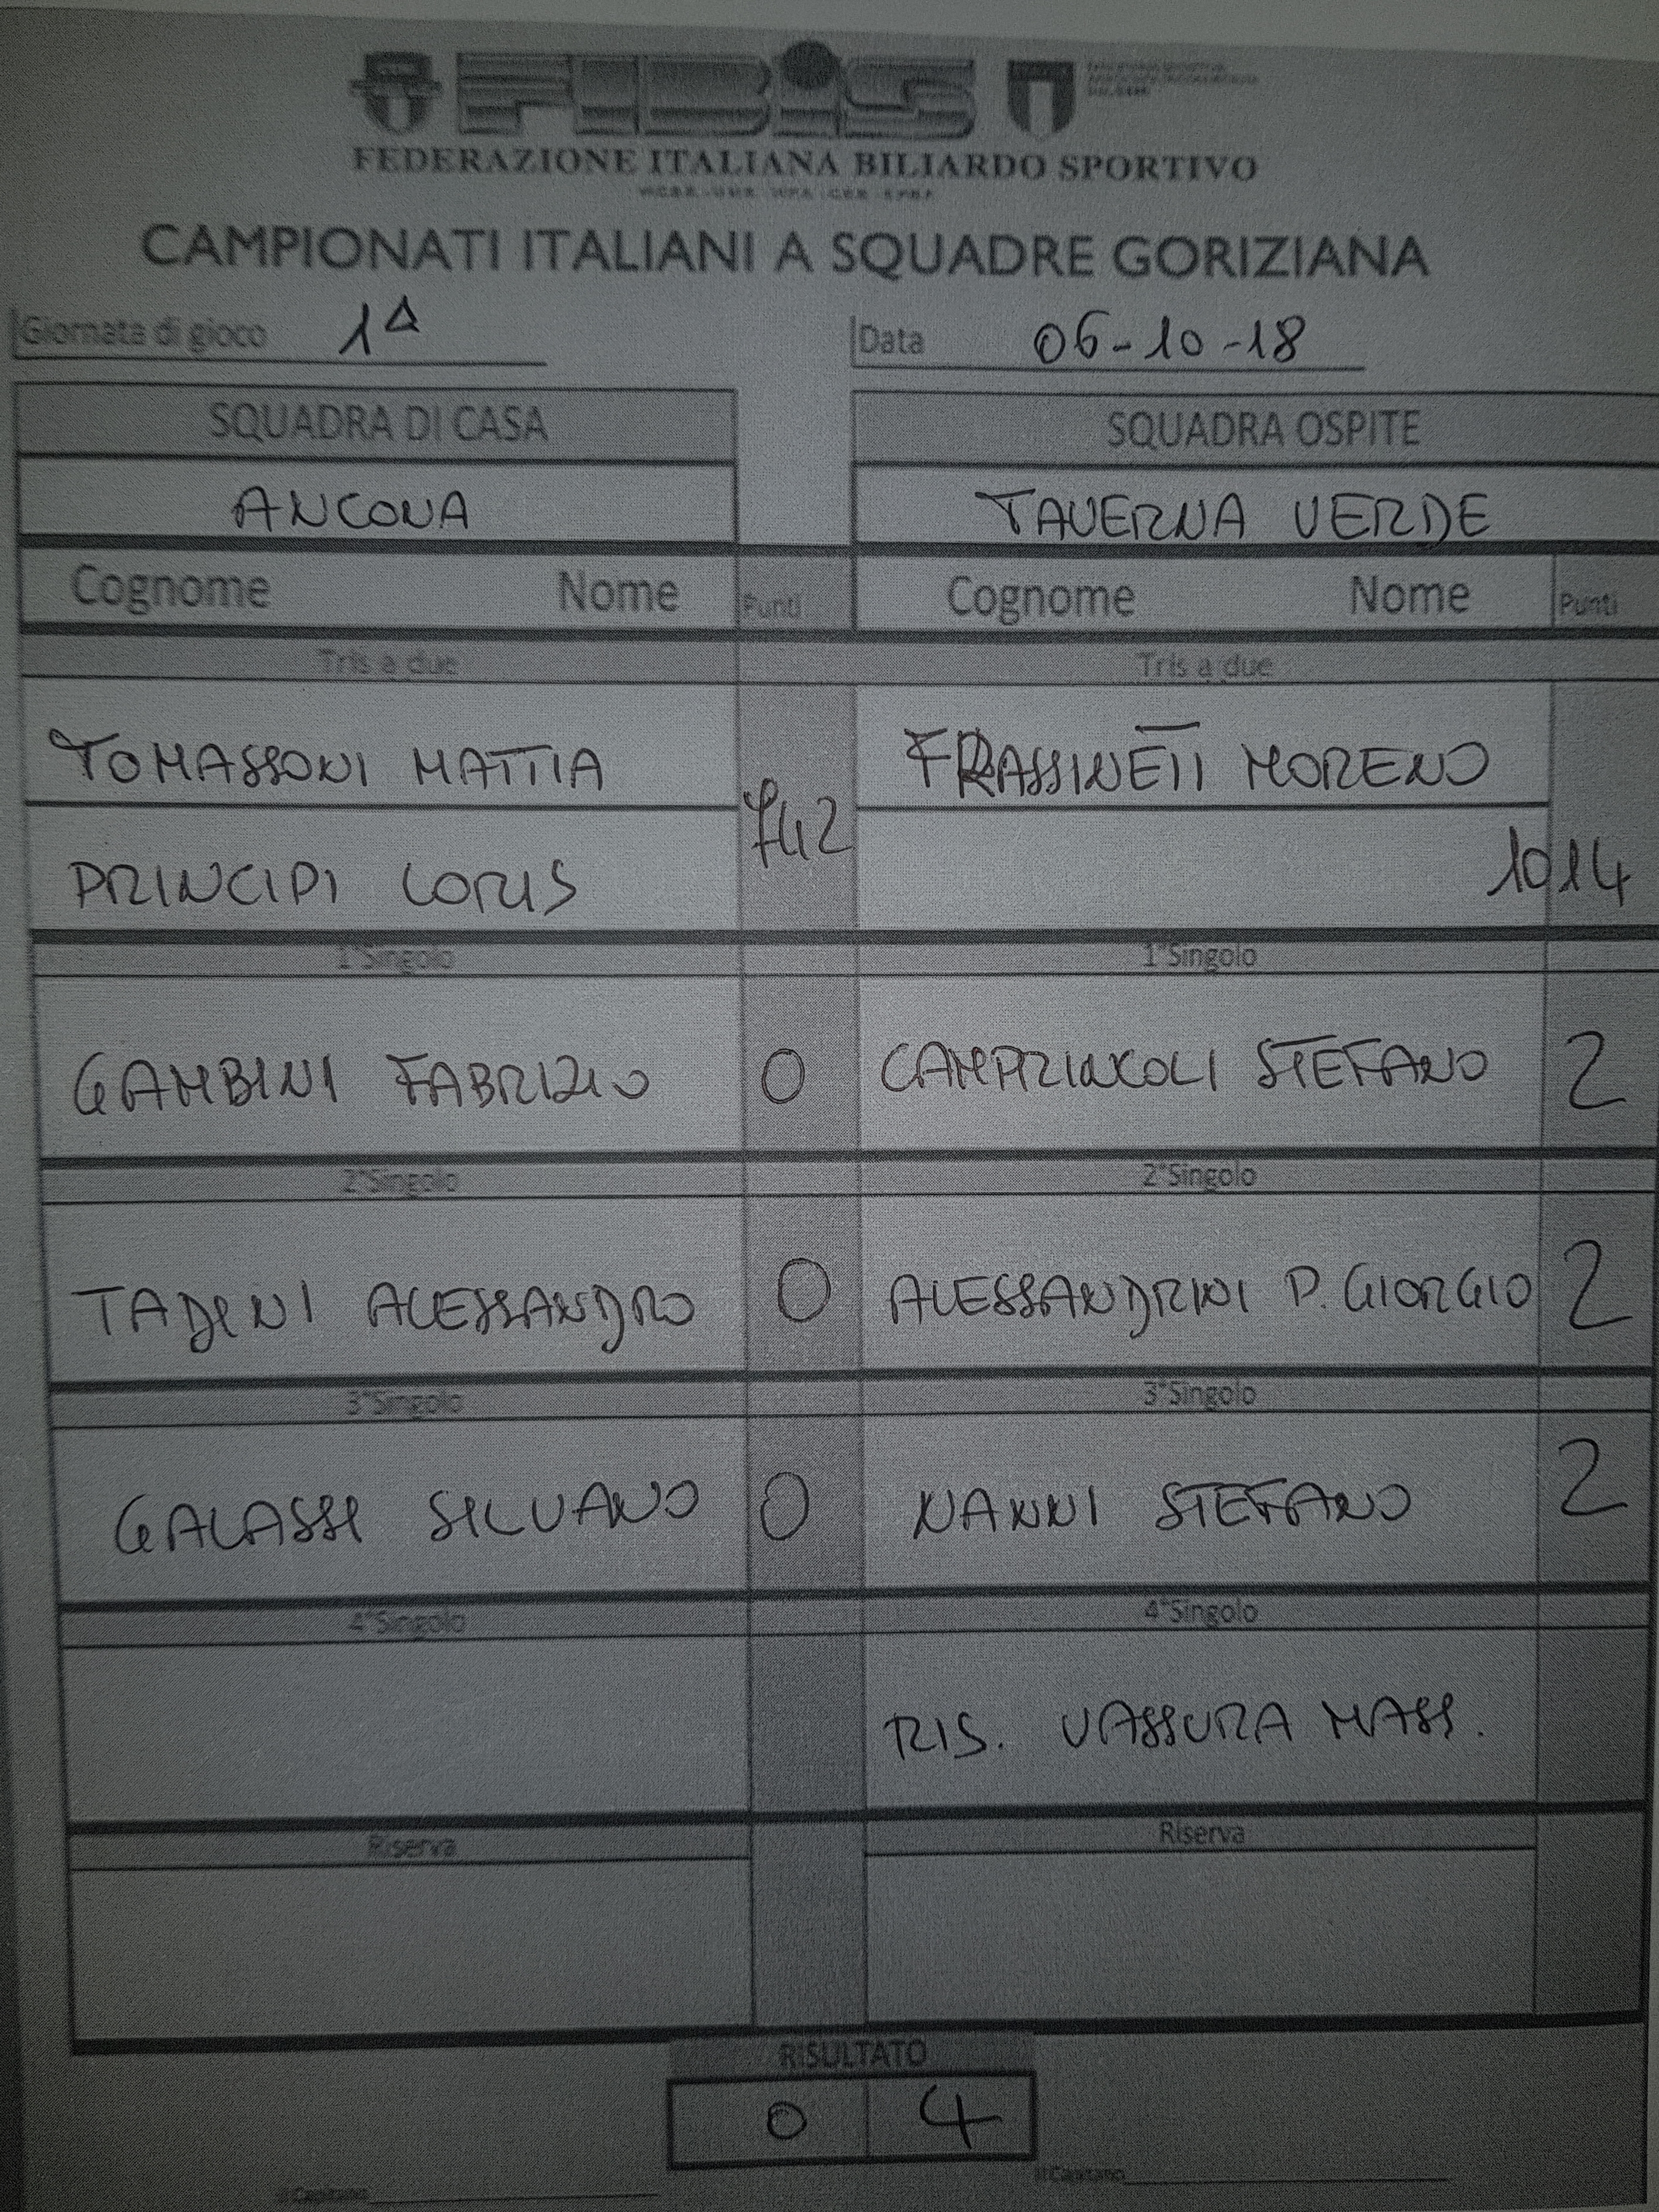 FIBiS
FEDERAZIONE ITALIANA BILIARDO SPORTIVO
CAMPIONATI ITALIANI A SQUADRE GORIZIANA
Giornata di gioco 1A Data 06-10-18
SQUADRA DI CASA SQUADRA OSPITE
ANCONA TAVERNA VERDE
Cognome Nome Punti Cognome Nome Punti
Tris a due Tris a due
TOMASSONI MATTIA 742 FRASSINETI MORENO
PRINCIPI LORIS 1014
1°Singolo 1°Singolo
GAMBINI FABRIZIO 0 CAMPRINCOLI STEFANO 2
2°Singolo 2°Singolo
TADINI ALESSANDRO 0 ALESSANDRINI P. GIORGIO 2
3°Singolo 3°Singolo
GALASSI SILVANO 0 NANNI STEFANO 2
4°Singolo 4°Singolo
RIS. VASSURA MASS.
Riserva Riserva
RISULTATO
0 4
Il Capitano Il Capitano